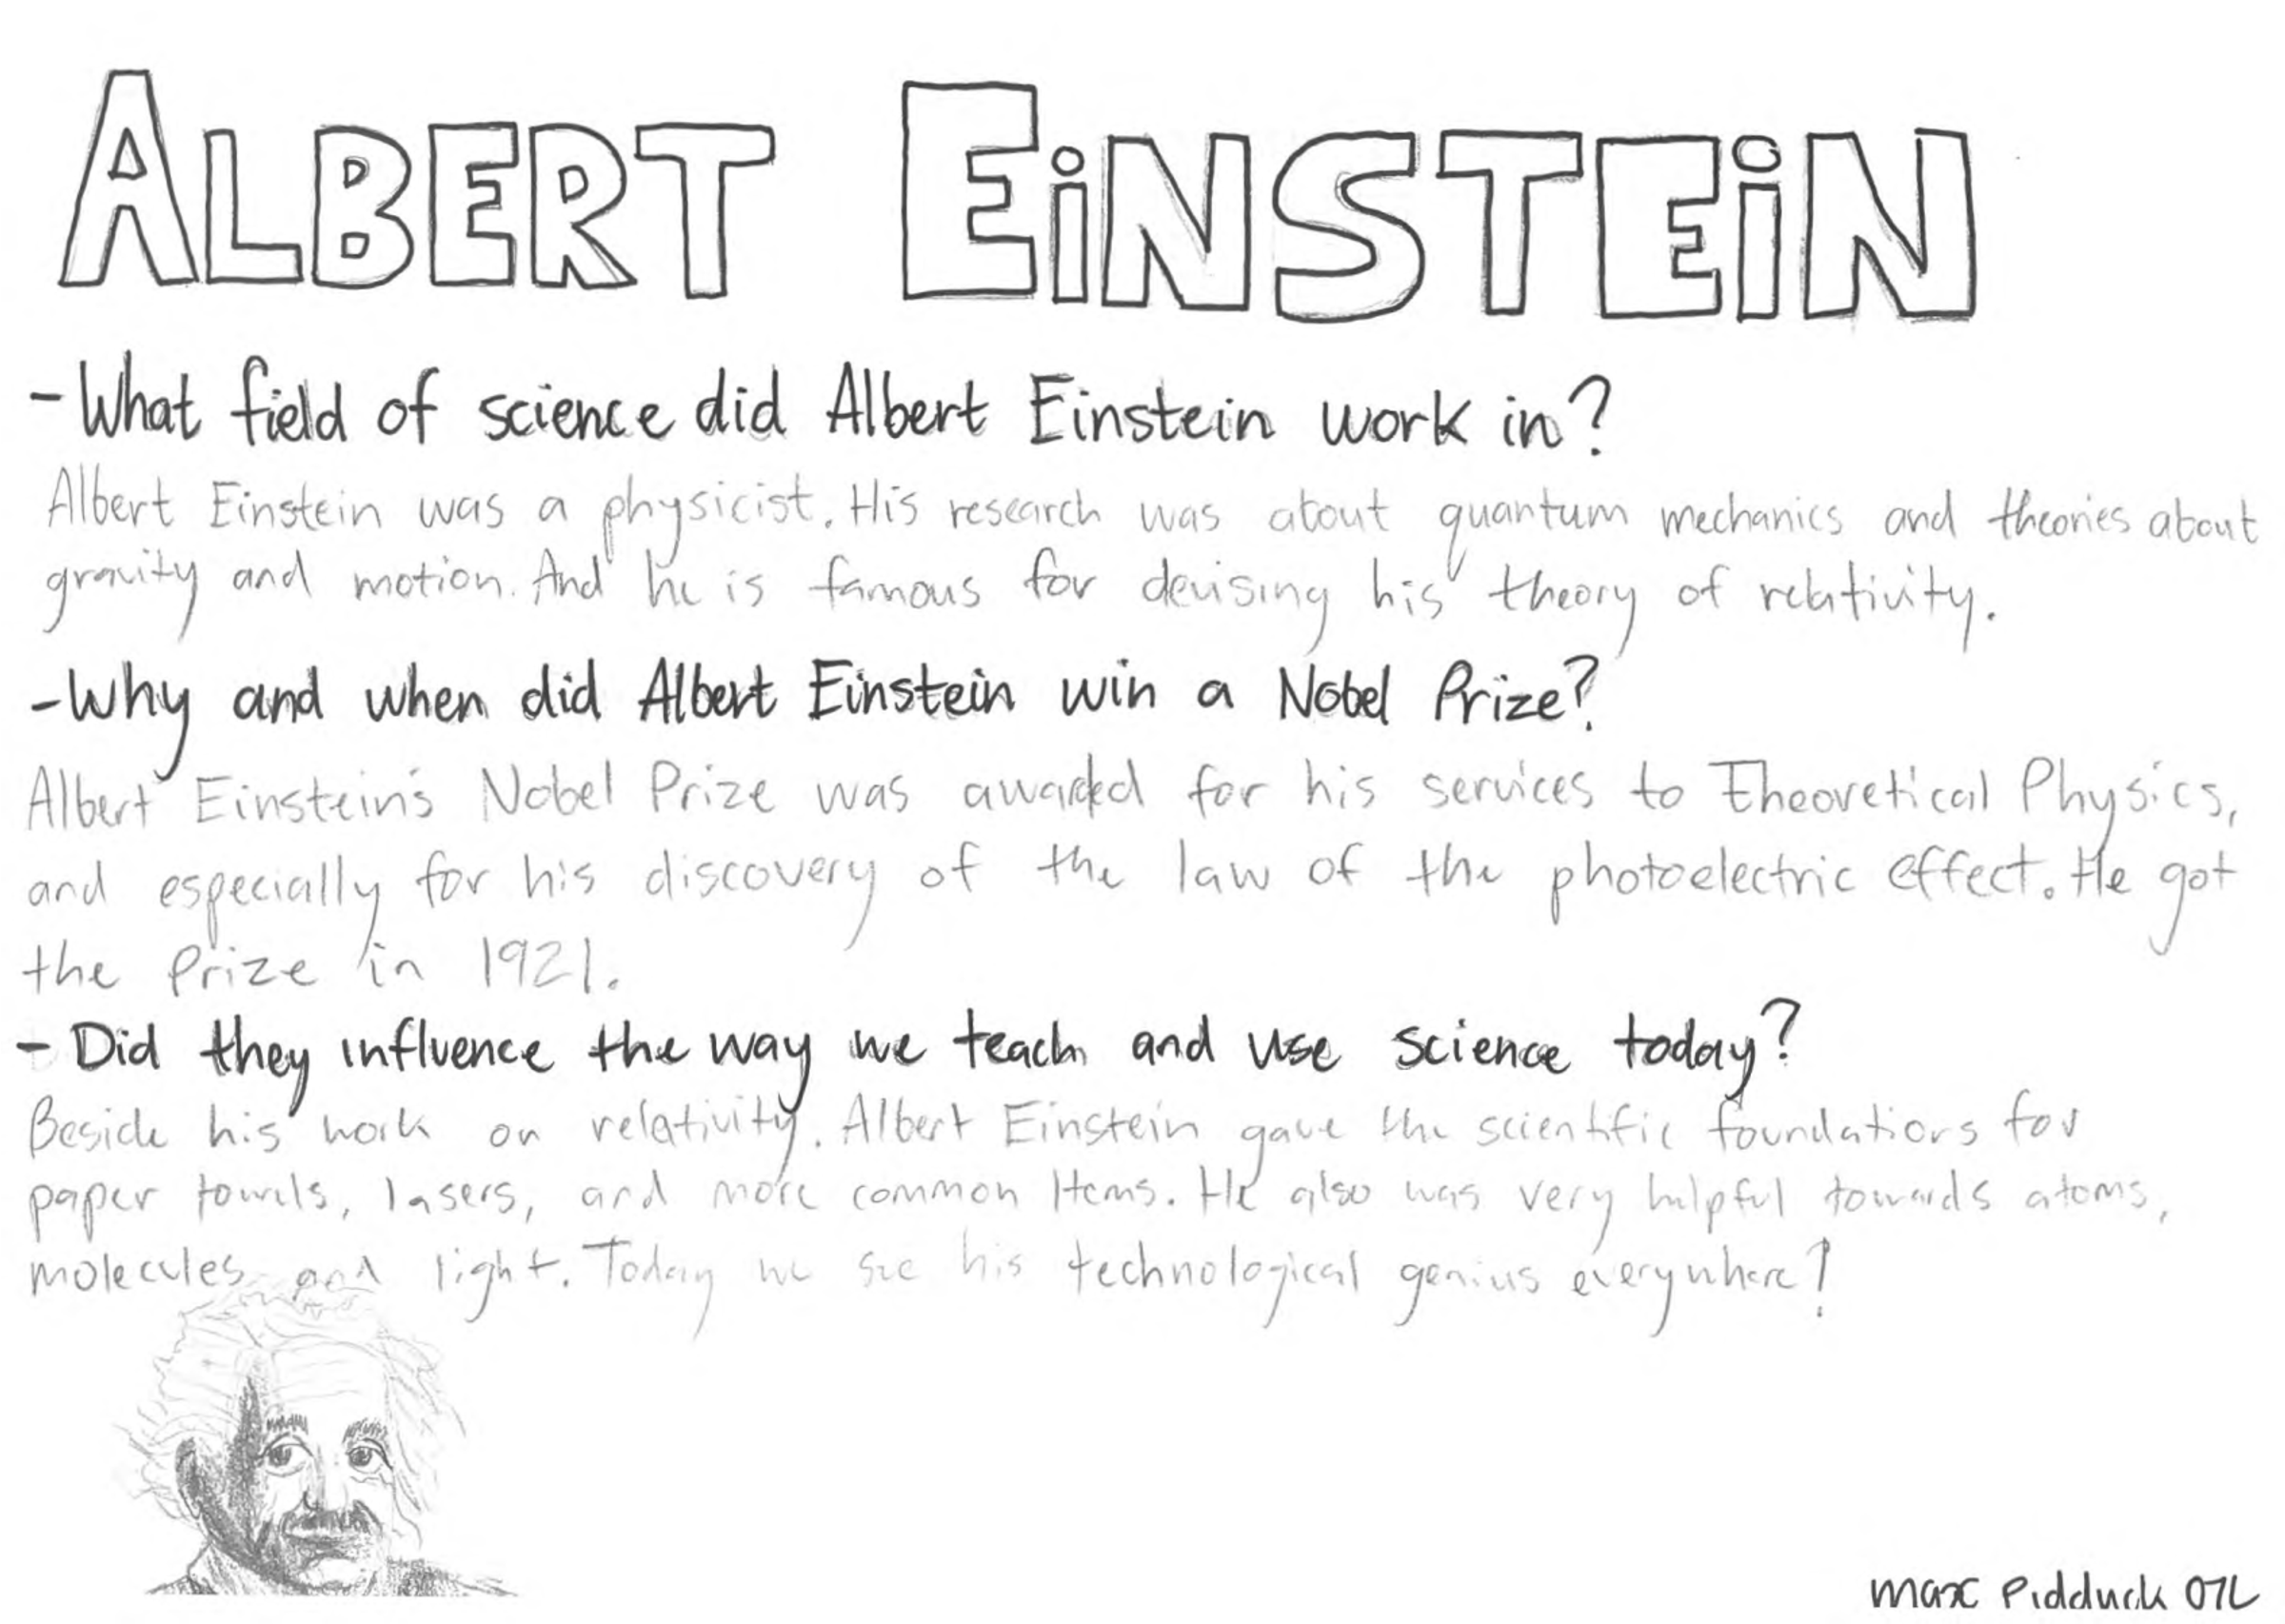 ALBERT EiNSTEiN
- What field of science did Albert Einstein work in?
Albert Einstein was a physicist. His research was about quantum mechanics and theories about
gravity and motion. And he is famous for devising his theory of relativity.
- Why and when did Albert Einstein win a Nobel Prize?
Albert Einstein's Nobel Prize was awarded for his services to Theoretical Physics,
and especially for his discovery of the law of the photoelectric effect. He got
the Prize in 1921.
- Did they influence the way we teach and use science today?
Beside his work on relativity. Albert Einstein gave the scientific foundations for
paper towels, lasers, and more common Items. He also was very helpful towards atoms,
molecules and light. Today we see his technological genius everywhere!
Max Pidduck 07L